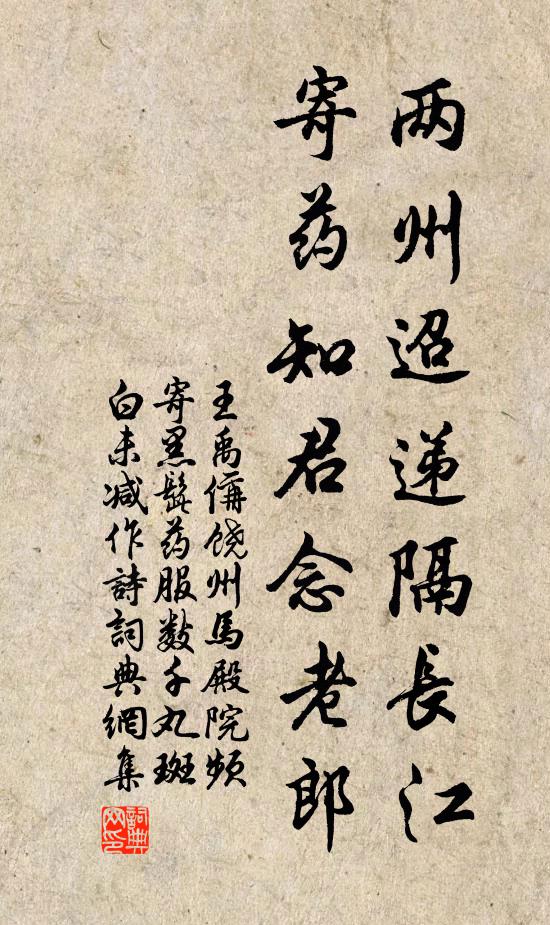 两州迢递隔長江
寄药知君念老郎
王禹偁饶州馬殿院頻
寄黑髭药服数千丸斑
白未减作詩詞典網集
詞典
网印